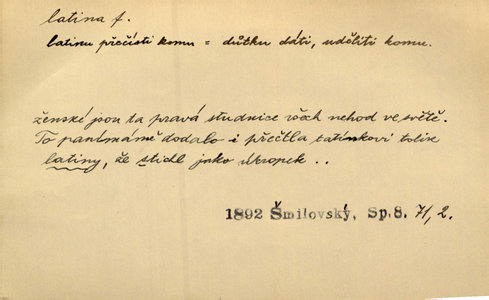 latina f.
latinu přečísti komu = důtku dáti, uděliti komu.
ženské jsou ta pravá studnice všech nehod ve světě.
To panímámě dodalo i přečtla tatínkovi tolik
latiny, že stichl jako úkropek ..
1892 Šmilovský, Sp. 8. 71, 2.